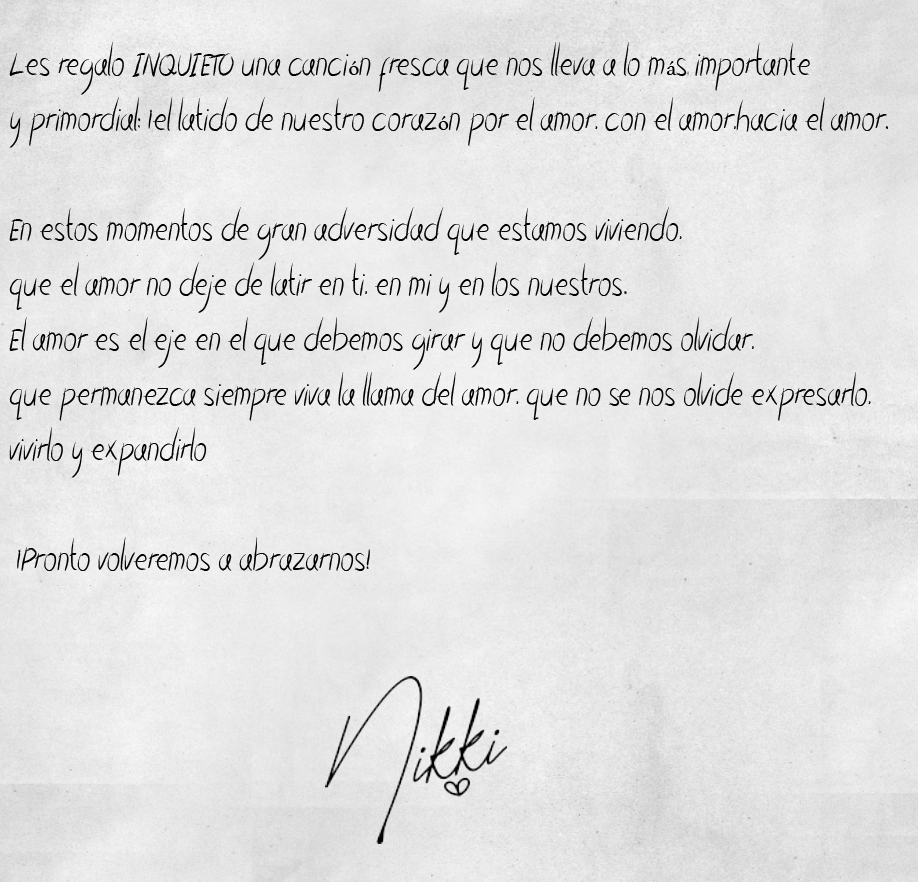 Les regalo INQUIETO una canción fresca que nos lleva a lo más importante
y primordial: ¡el latido de nuestro corazón por el amor, con el amor,hacia el amor.
En estos momentos de gran adversidad que estamos viviendo,
que el amor no deje de latir en ti, en mi y en los nuestros.
El amor es el eje en el que debemos girar y que no debemos olvidar,
que permanezca siempre viva la llama del amor, que no se nos olvide expresarlo,
vivirlo y expandirlo
¡Pronto volveremos a abrazarnos!
Nikki